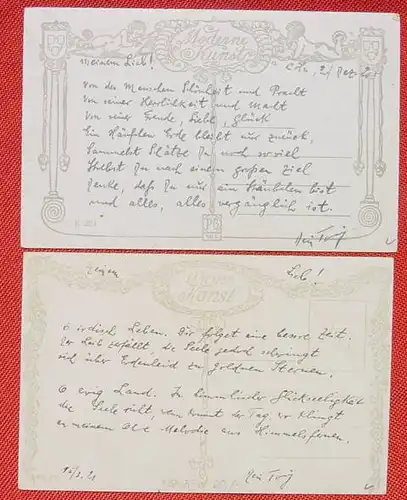 Moderne
Kunst
meinem Lieb!
Cöln, 2/ Dez. 21
Von der Menschen Schönheit und Pracht
Von seiner Herrlichkeit und Macht
Von seiner Freude, Liebe, Glück
Ein Häuflein Erde bleibt nur zurück,
Sammelst Schätze Du noch soviel
Strebst Du nach einem großen Ziel
Denke, daß Du nur ein Stäublein bist
und alles, alles vergänglich ist.
Dein
Moderne
Kunst
Lieb!
O irdisch Leben. Dir folget eine bessre Zeit.
Der Leib zerfällt, die Seele jedoch schwingt
sich über Erdenleid zu goldnen Sternen.
O ewig Land. In himmlischer Glückseeligkeit
die Seele ruht, dann kommt der Tag, wo klingt
an meinem Ohr Melodie aus Himmelsfernen.
21
Dein